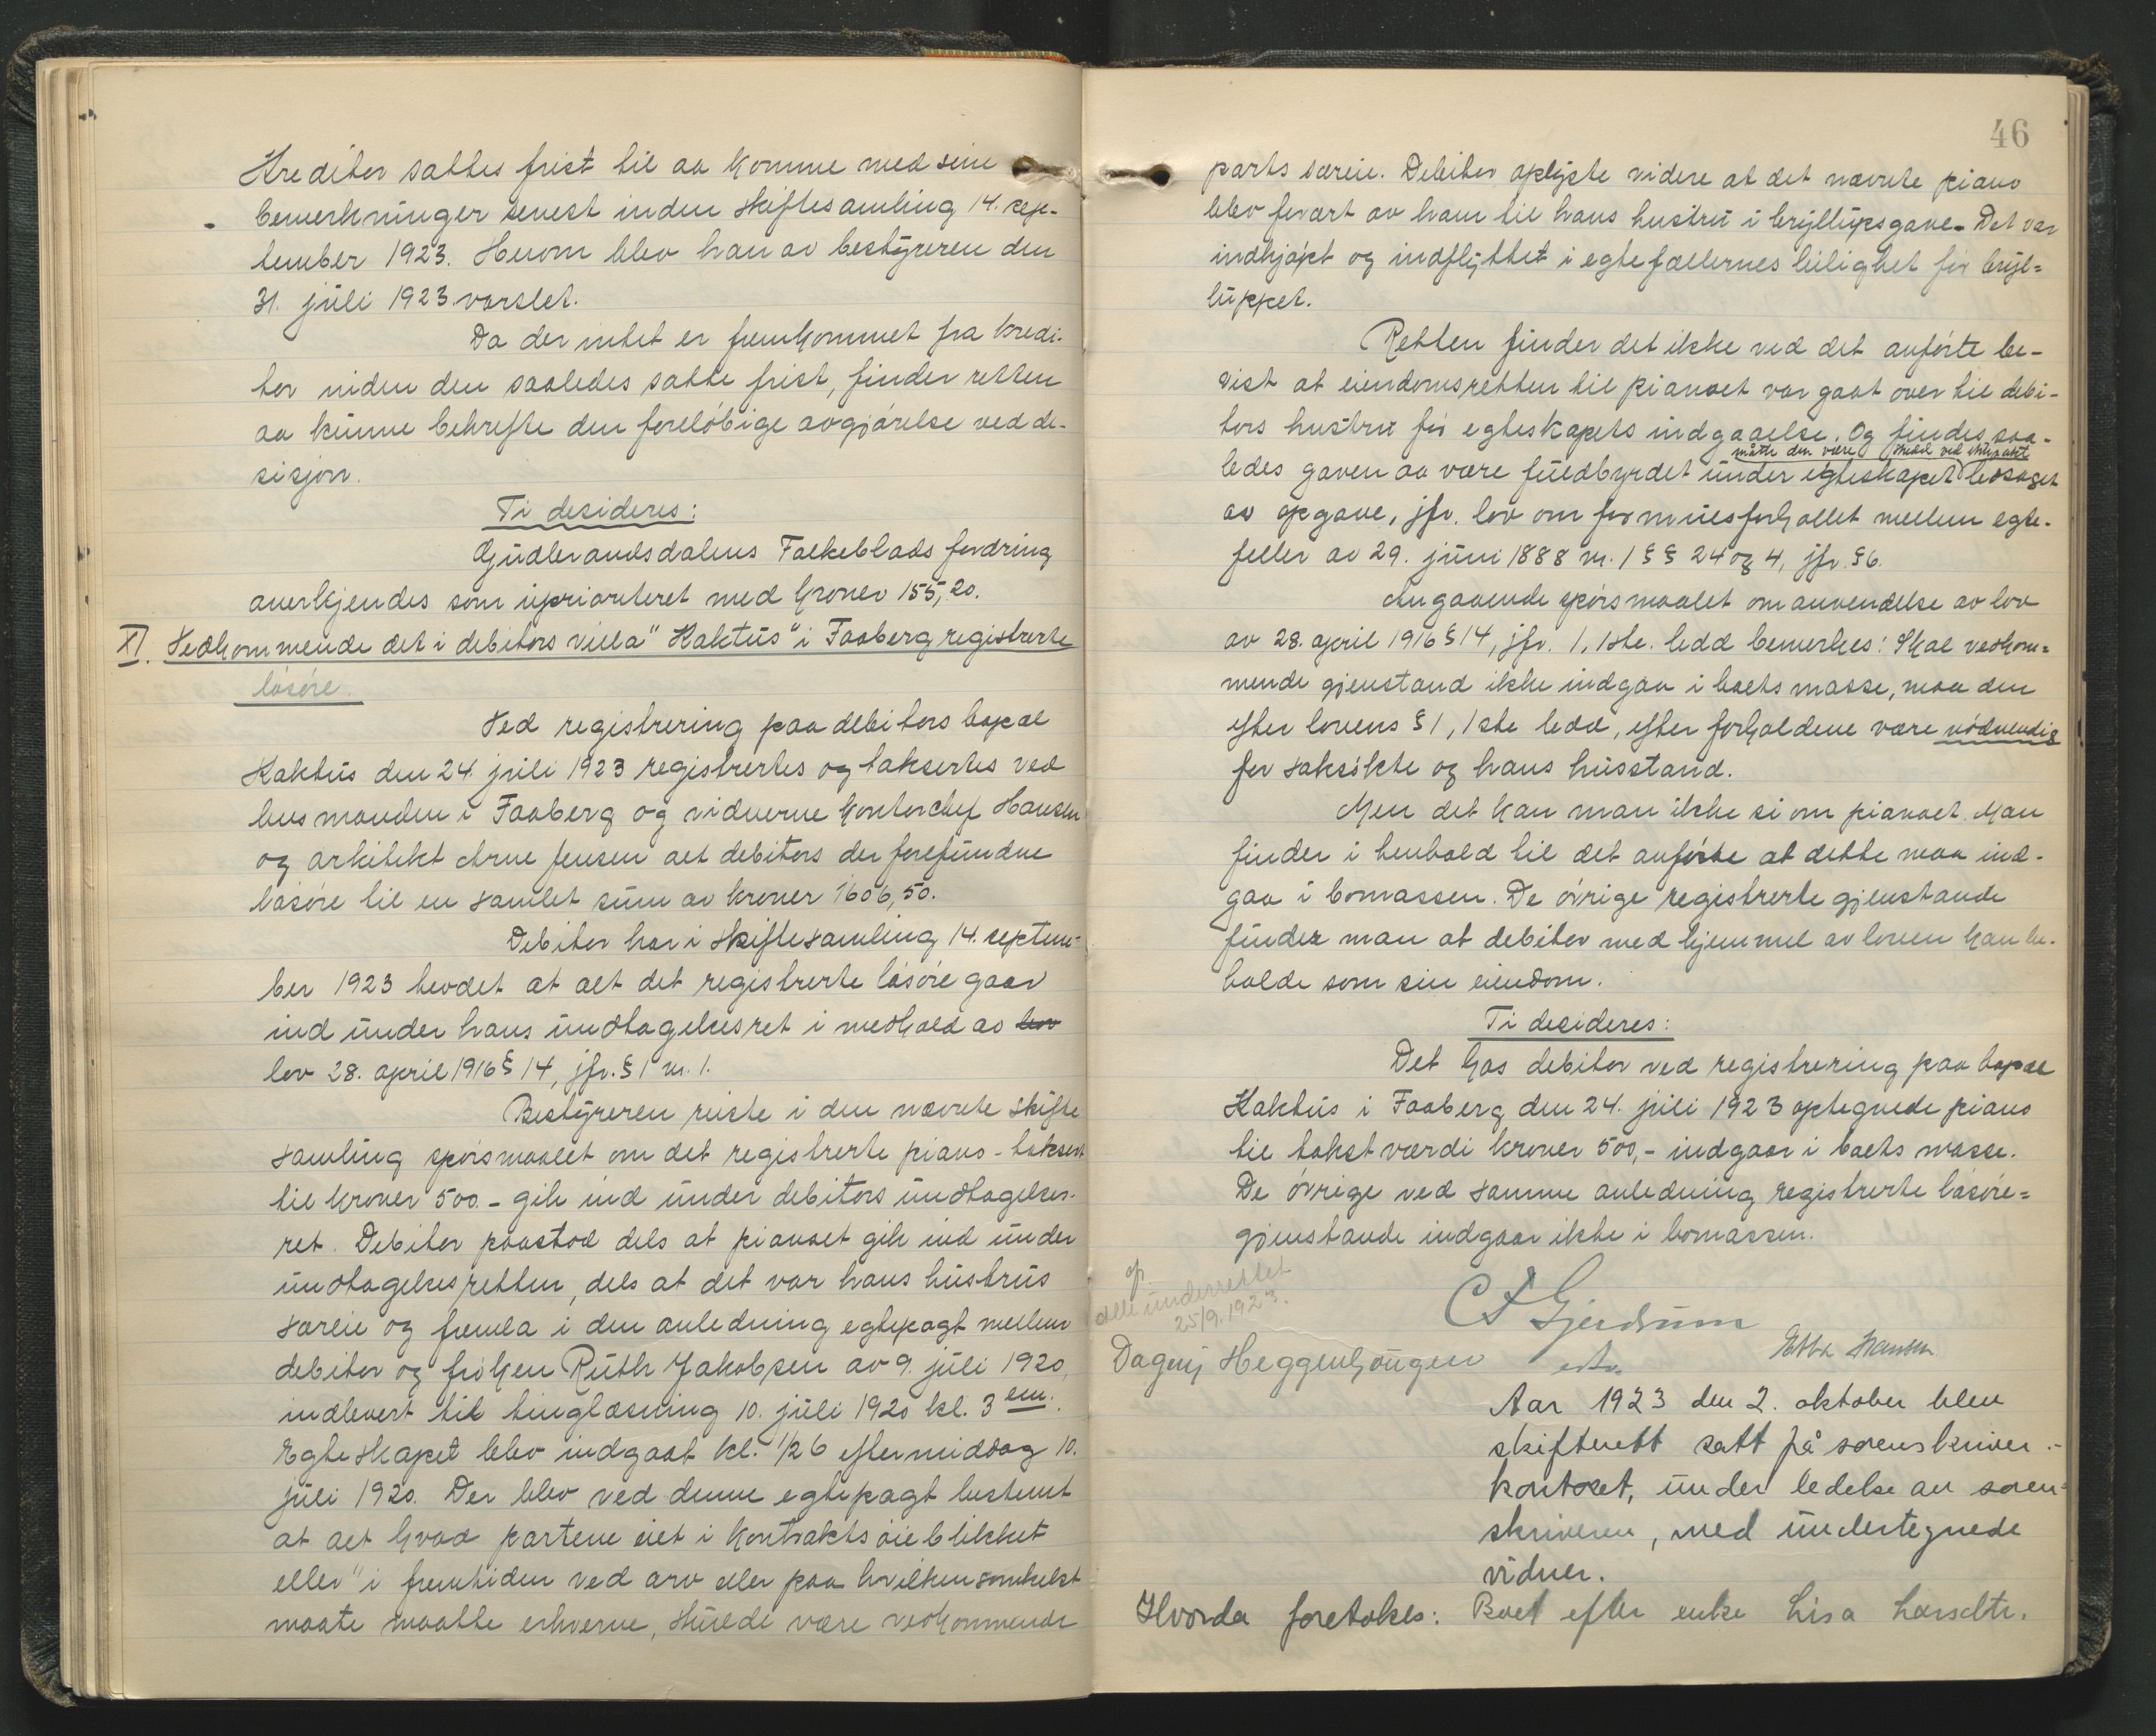 Kreditor sattes frist til aa komme med sine
bemerkninger senest inden skiftesamling 14. sep-
tember 1923. Herom blev han av bestyreren den
31. juli 1923 varslet.
Da der intet er fremkommet fra kredi-
tor inden den saaledes satte frist, finder retten
aa kunne bekrefte den foreløbige avgjørelse ved de-
sisjon.
Ti desideres:
Gudbrandsdalens Folkeblads fordring
anerkjendes som uprioriteret med kroner 155,20.
XI. Vedkommende det i debitors villa "Kaktus" i Faaberg registrerte
løsøre.
Ved registrering paa debitors bopæl
Kaktus den 24. juli 1923 registrertes og taksertes ved
lensmanden i Faaberg og vidnerne kontorchef Hansen
og arkitekt Arne Jensen alt debitors der forefundne
løsøre til en samlet sum av kroner 1606,50.
Debitor har i skiftesamling 14. septem-
ber 1923 hevdet at alt det registrerte løsøre gaar
ind under hans undtagelsesret i medhold av lov
lov 28. april 1916 § 14, jfr. § 1 nr. 1.
Bestyreren reiste i den nævnte skifte
samling spørsmaalet om det registrerte piano - taksert
til kroner 500.- gik ind under debitors undtagelses-
ret. Debitor paastod dels at pianoet gik ind under
undtagelsesretten, dels at det var hans hustrus
særeie og fremla i den anledning egtepagt mellem
debitor og frøken Ruth Jakobsen av 9. juli 1920,
indlevert til tinglæsning 10. juli 1920 kl. 3 em.
Egteskapet blev indgaat kl. 1/2 6 eftermiddag 10.
juli 1920. Der blev ved denne egtepagt bestemt
at alt hvad partene eiet i kontraktsøieblikket
eller "i fremtiden ved arv eller paa hvilkensomhelst
maate maatte erhverve, skulde være vedkommende
46
parts særeie. Debitor oplyste videre at det nævnte piano
blev forært av ham til hans hustru i bryllupsgave. Det var
indkjøpt og indflyttet i egtefællernes leilighet før bryl=
luppet.
Retten finder det ikke ved det anførte be-
vist at eiendomsretten til pianoet var gaat over til debi-
tors hustru før egteskapets indgaaelse. Og findes saa-
måtte den være
ledes gaven aa være fuldbyrdet under egteskapet ledsaget
av opgave, jfr. lov om formuesforholdet mellem egte-
feller av 29. juni 1888 nr. 1 §§ 24 og 4, jfr. § 6.
Angaaende spørsmaalet om anvendelse av lov
av 28. april 1916 § 14, jfr. 1, 1ste. ledd bemerkes: Skal vedkom=
mende gjenstand ikke indgaa i boets masse, maa den
efter lovens § 1, 1ste ledd, efter forholdene være nødvendig
for saksøkte og hans husstand.
Men det kan man ikke si om pianoet. Man
finder i henhold til det anførte at dette maa ind-
gaa i bomassen. De øvrige registrerte gjenstande
finder man at debitor med hjemmel av loven kan be-
holde som sin eiendom.
Ti desideres:
Det hos debitor ved registrering paa bopæl
Kaktus i Faaberg den 24. juli 1923 optegnede piano
til takstværdi kroner 500,- indgaar i boets masse.
De øvrige ved samme anledning registrerte løsøre=
gjenstande indgaar ikke i bomassen.
alle underrettet
25/9.1923.
C F Gjerdrum
Dagny Heggenhougen Ebba Hansen
Aar 1923 den 2. oktober blev
skifterett satt på sorenskriver-
kontoret, under ledelse av soren-
skriveren, med undertegnede
vidner.
Hvorda foretokes: Boet efter enke Lisa Larsdtr.